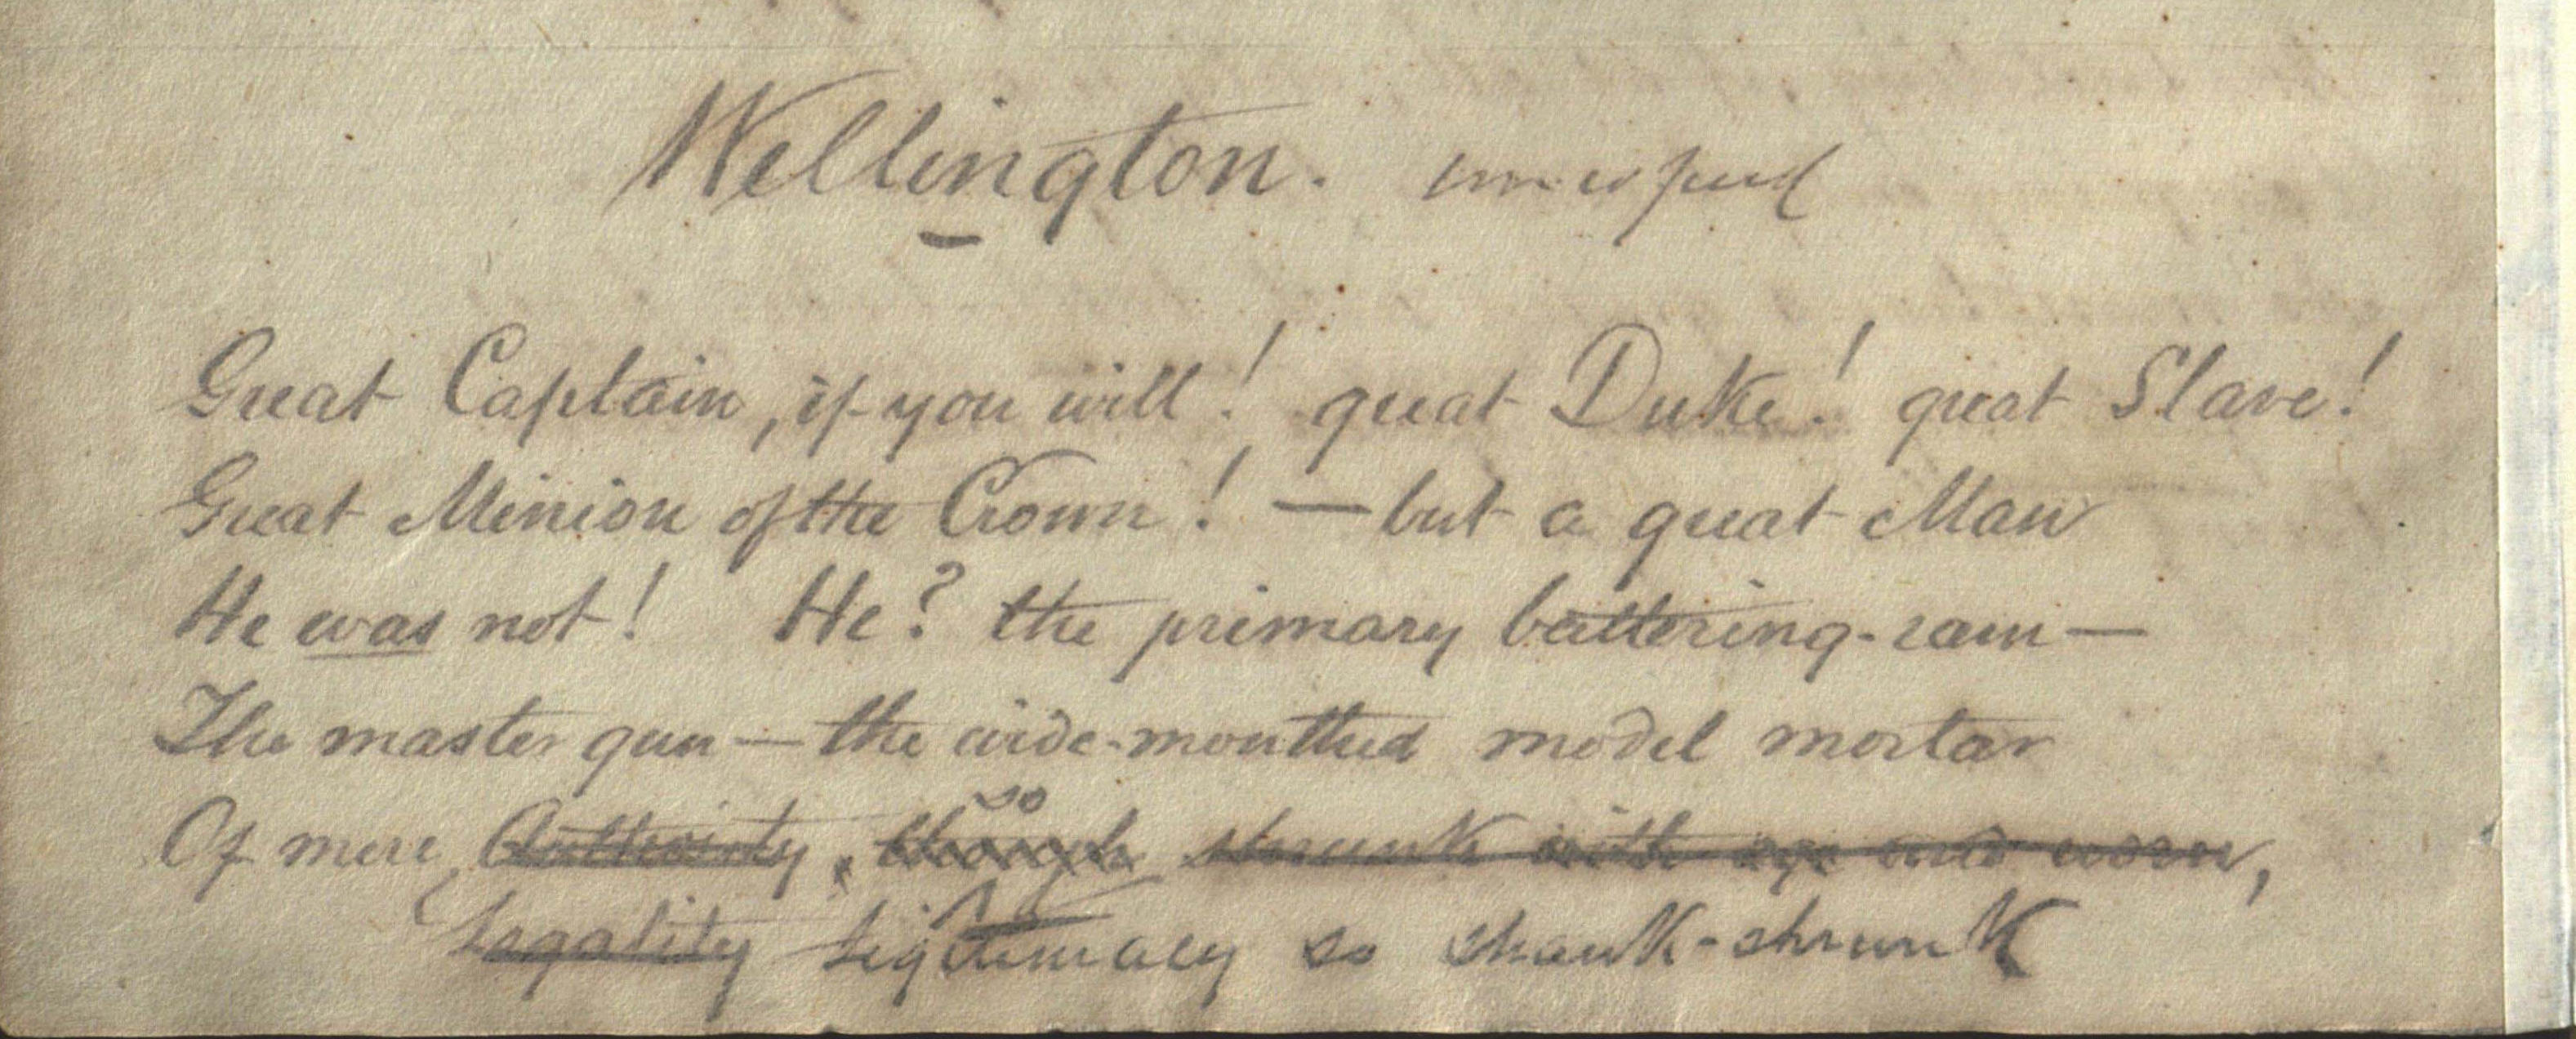 Wellington.
Great Captain, if you will! great Duke! great Slave!
Great Minion of the Crown! — but a great Man
He was not! He? the primary battering-ram —
The master gun — the wide-mouthed model mortar
so
Of mere Authority, though shrunk with age and worn,
Legality Legitimacy so shank-shrunk